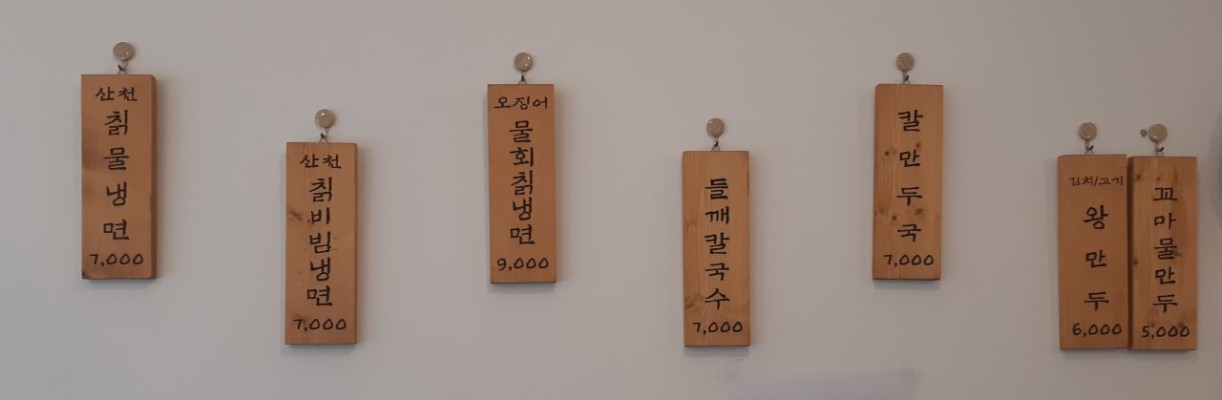 산천
칡물냉면
7,000
산천
칡비빔냉면
7,000
오징어
물회칡냉면
9,000
들깨칼국수
7,000
칼만두국
7,000
김치/고기
왕만두
6,000
꼬마물만두
5,000